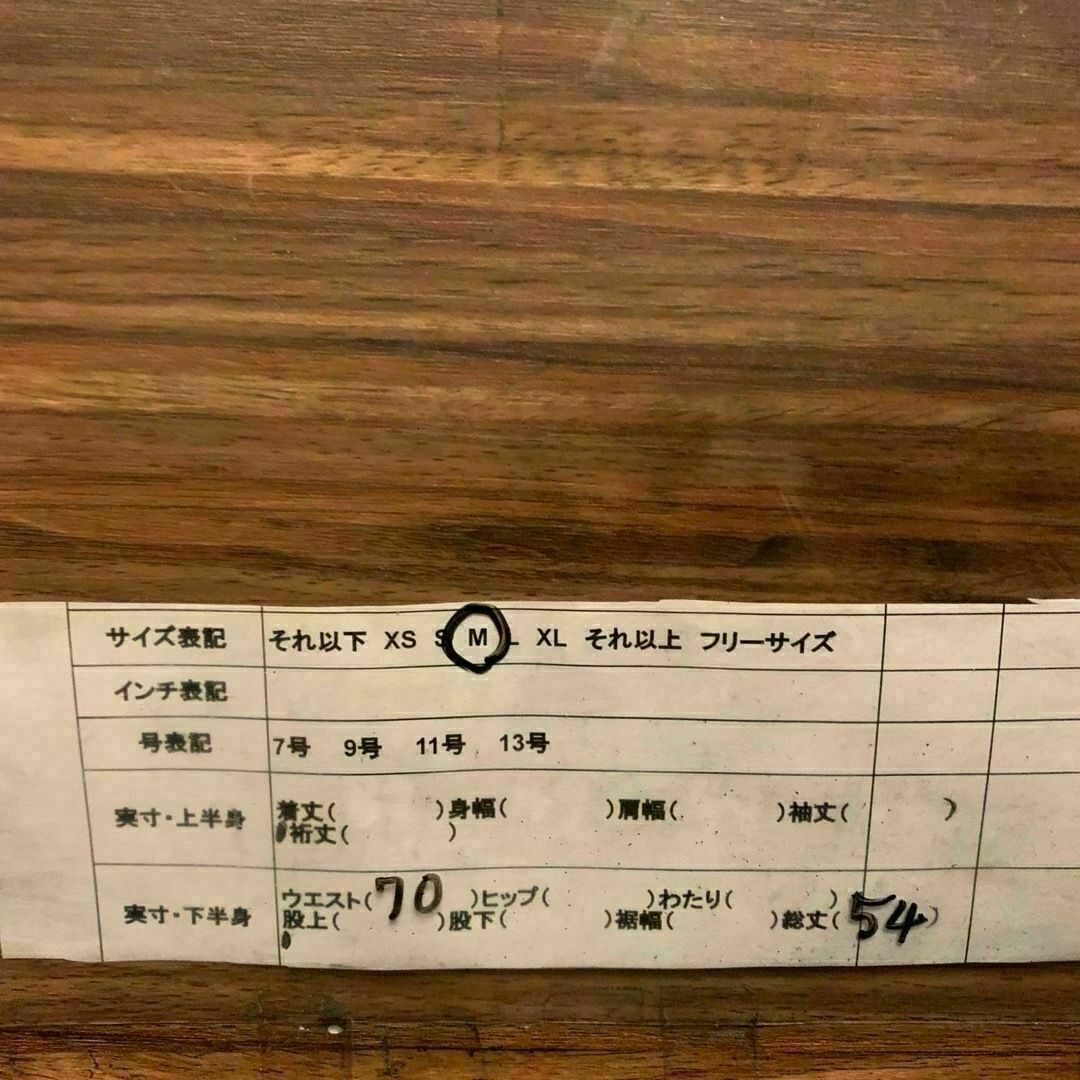 サイズ表記 それ以下 XS S M L XL それ以上 フリーサイズ
インチ表記
号表記 7号 9号 11号 13号
実寸・上半身 着丈( )身幅( )肩幅( )袖丈( )
裄丈( )
実寸・下半身 ウエスト(70 )ヒップ( )わたり( )
股上( )股下( )裾幅( )総丈(54)